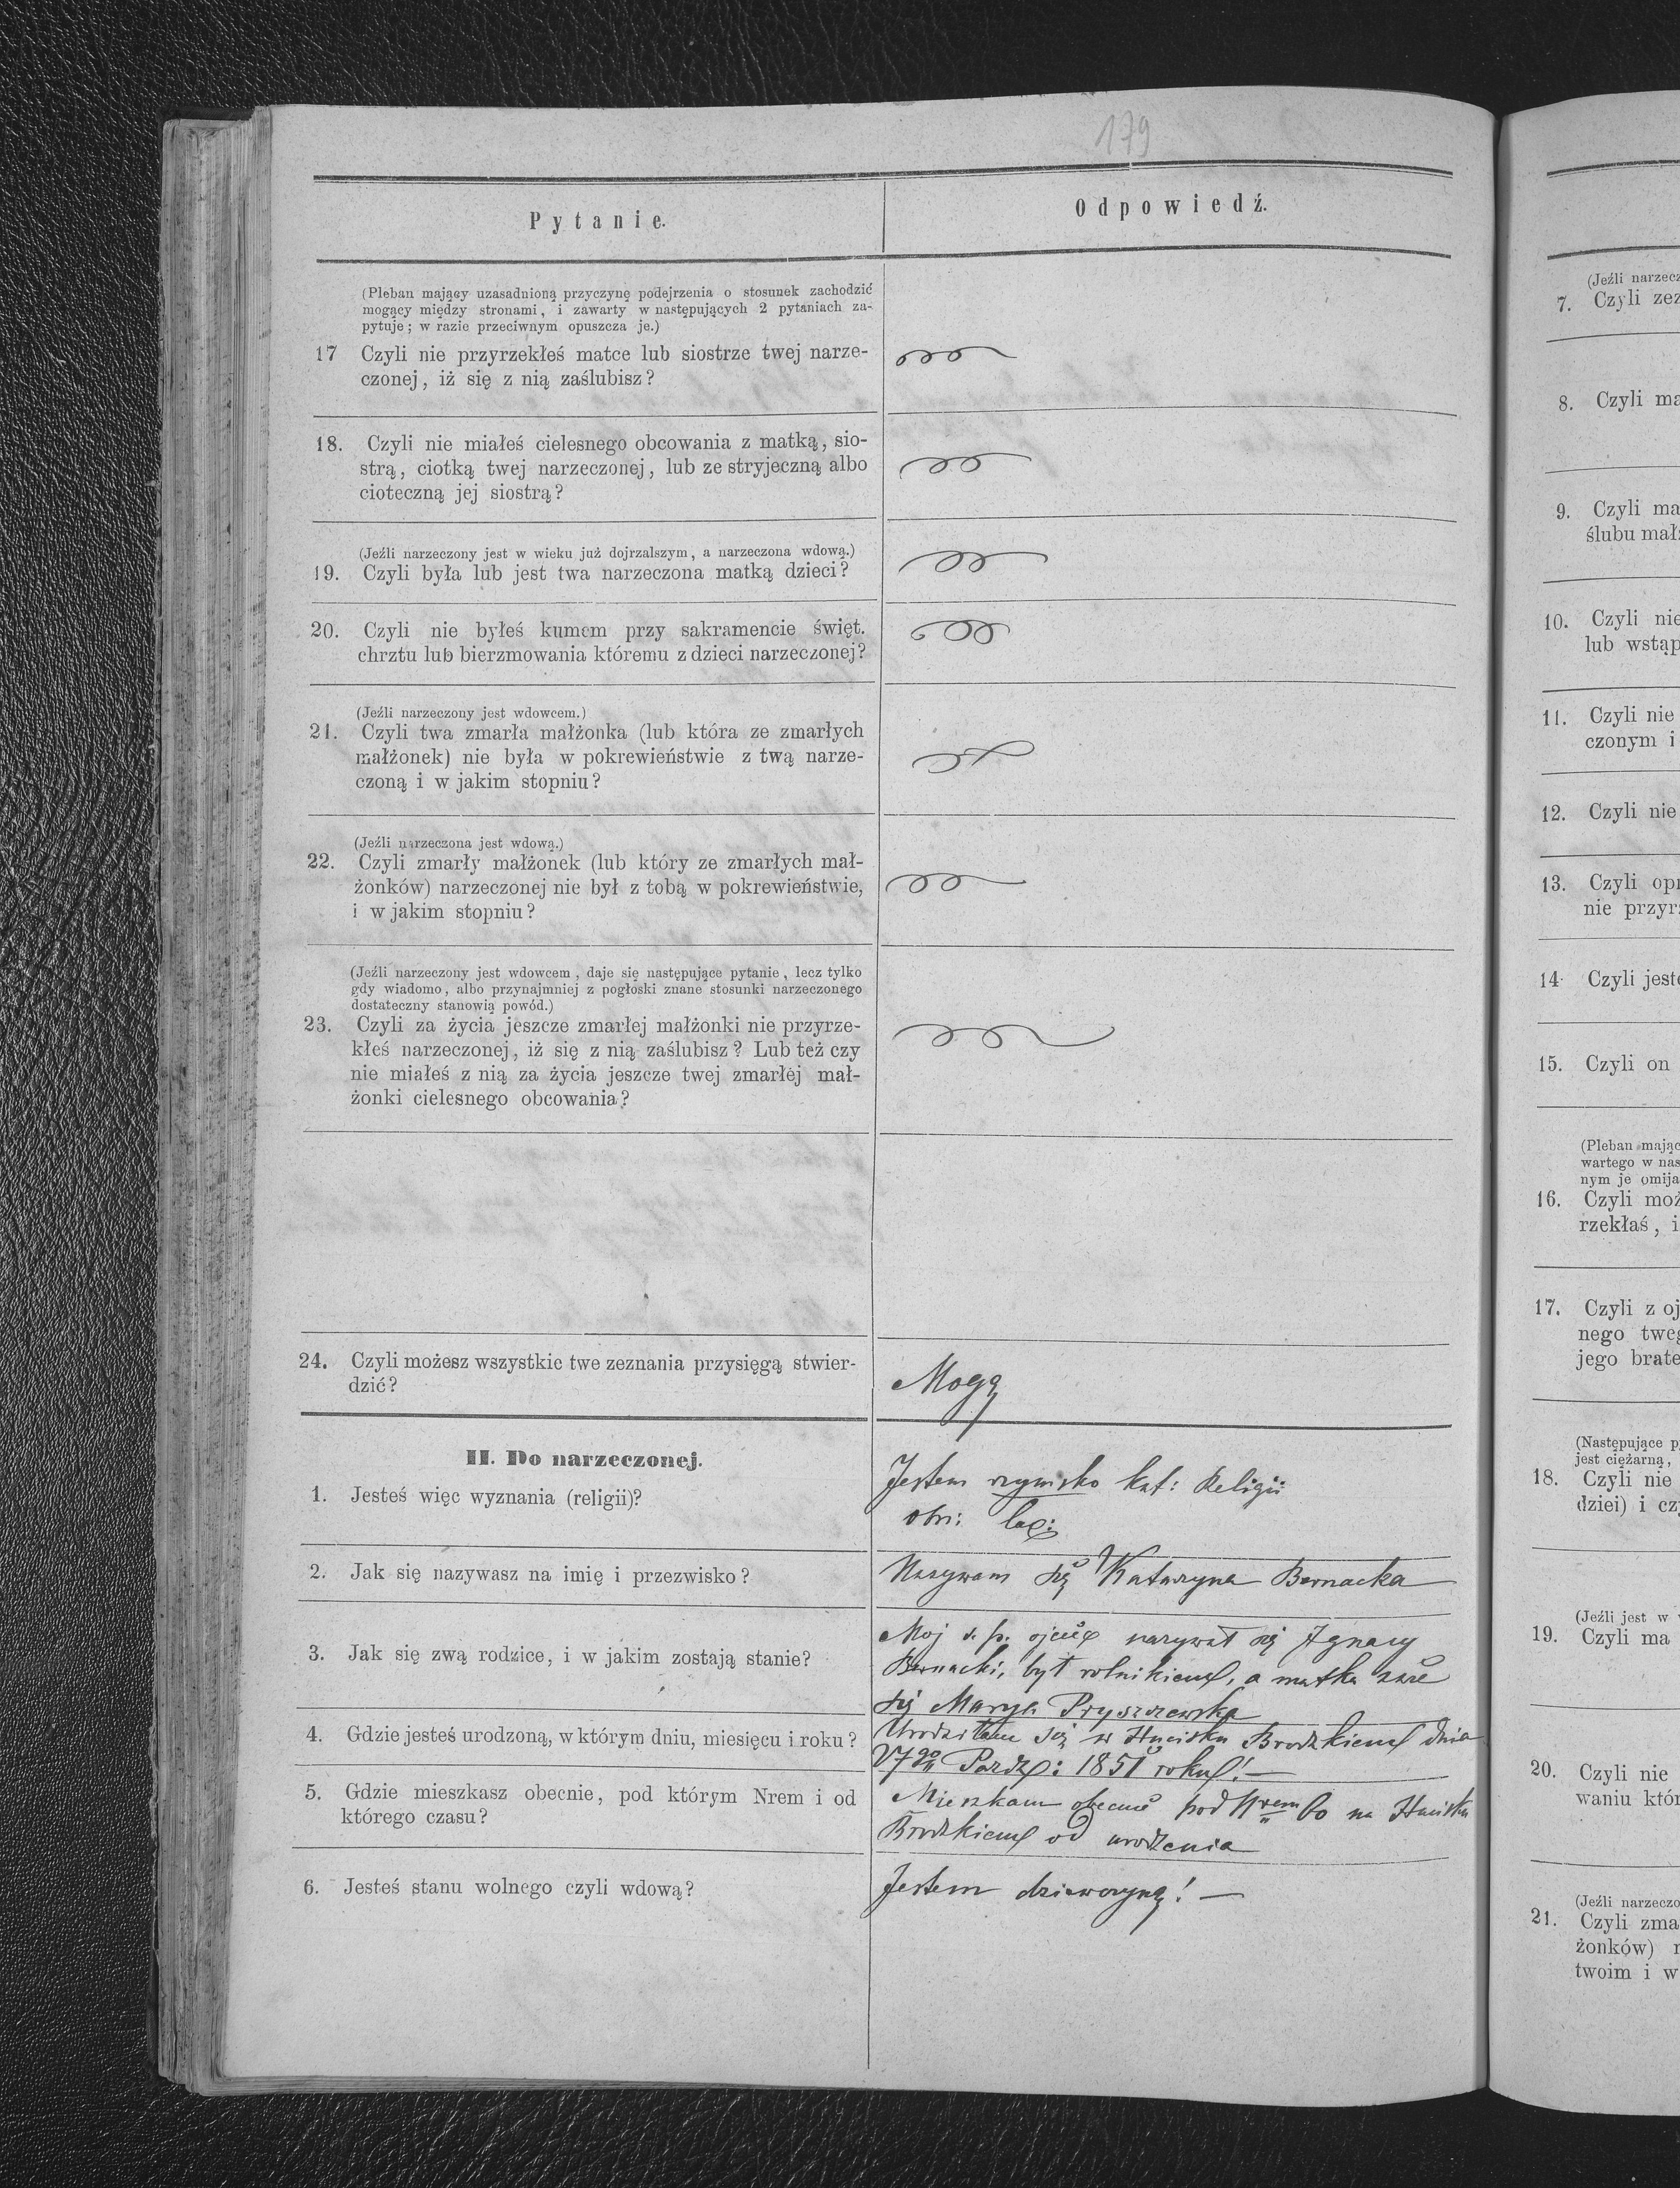 179
Pytanie.
Odpowiedź.
(Pleban mający uzasadnioną przyczynę podejrzenia o stosunek zachodzić
mogący między stronami, i zawarty w następujących 2 pytaniach za-
pytuje; w razie przeciwnym opuszcza je.)
17 Czyli nie przyrzekłeś matce lub siostrze twej narze-
czonej, iż się z nią zaślubisz?
18. Czyli nie miałeś cielesnego obcowania z matką, sio-
strą, ciotką twej narzeczonej, lub ze stryjeczną albo
cioteczną jej siostrą?
(Jeźli narzeczony jest w wieku już dojrzalszym, a narzeczona wdową.)
19. Czyli była lub jest twa narzeczona matką dzieci?
20. Czyli nie byłeś kumem przy sakramencie święt.
chrztu lub bierzmowania któremu z dzieci narzeczonej?
(Jeźli narzeczony jest wdowcem.)
21. Czyli twa zmarła małżonka (lub która ze zmarłych
małżonek) nie była w pokrewieństwie z twą narze-
czoną i w jakim stopniu?
(Jeźli narzeczona jest wdową.)
22. Czyli zmarły małżonek (lub który ze zmarłych mał-
żonków) narzeczonej nie był z tobą w pokrewieństwie,
i w jakim stopniu?
(Jeźli narzeczony jest wdowcem, daje się następujące pytanie, lecz tylko
gdy wiadomo, albo przynajmniej z pogłoski znane stosunki narzeczonego
dostateczny stanowią powód.)
23. Czyli za życia jeszcze zmarłej małżonki nie przyrze-
kłeś narzeczonej, iż się z nią zaślubisz? Lub też czy
nie miałeś z nią za życia jeszcze twej zmarłej mał-
żonki cielesnego obcowania?
24. Czyli możesz wszystkie twe zeznania przysięgą stwier-
dzić?
Mogę
II. Do narzeczonej.
1. Jesteś więc wyznania (religii)?
Jestem rzymsko kat: Religii
obrz: łac:
2. Jak się nazywasz na imię i przezwisko?
Nazywam się Katarzyna Bernacka
3. Jak się zwą rodzice, i w jakim zostają stanie?
Moj ś. p. ojciec nazywał się Ignacy
Bernacki, był rolnikiem, a matka zwie
się Marya Pryszczewska
4. Gdzie jesteś urodzoną, w którym dniu, miesięcu i roku?
Urodziłam się w Hucisku Brodzkiem dnia
Paźdz: 1851 roku!
5. Gdzie mieszkasz obecnie, pod którym Nrem i od
którego czasu?
Mieszkam obecnie pod Nrem na Hucisku
Brodzkiem od urodzenia
6. Jesteś stanu wolnego czyli wdową?
Jestem dziewczyną! —
(Jeźli narzecz
7. Czyli zez
8. Czyli ma
9. Czyli ma
ślubu małż
10. Czyli nie
lub wstąp
11. Czyli nie
czonym i
12. Czyli nie
13. Czyli opr
nie przyrz
14. Czyli jeste
15. Czyli on
(Pleban mając
wartego w nas
nym je omija
16. Czyli moż
rzekłaś, i
17. Czyli z oj
nego tweg
jego brate
(Następujące p
jest ciężarną,
18. Czyli nie
dziei) i cz
(Jeźli jest w
19. Czyli ma
20. Czyli nie
waniu któr
(Jeźli narzeczo
21. Czyli zma
żonków)
twoim i w